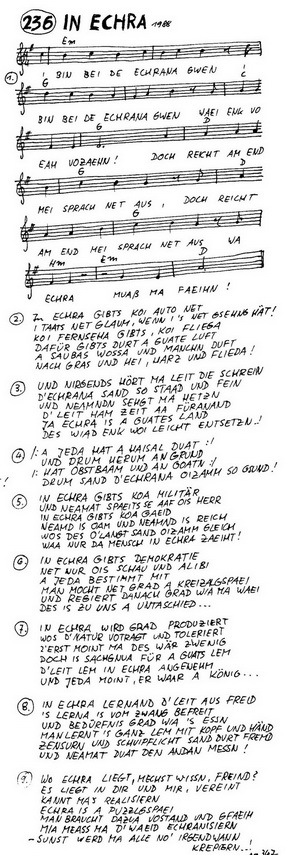 236 IN ECHRA 1988
Em
1. I BIN BEI DE ECHRANA GWEN I
G C
BIN BEI DE ECHRANA GWEN WAEI ENK VO
G D
EAH VOZAEHN! DOCH REICHT AM END
G D
MEI SPRACH NET AUS, DOCH REICHT
G
AM END MEI SPRACH NET AUS WA
Hm Em D
ECHRA MUAß MA FAEIHN!
2. IN ECHRA GIBTS KOI AUTO NET
I TAATS NET GLAUM, WENN I'S NET GSEHNG HÄT!
KOI FERNSEHA GIBTS, KOI FLIEGA
DAFÜR GIBTS DURT A GUATE LUFT
A SAUBAS WOSSA UND MANCHN DUFT
NACH GRAS UND HEI, HARZ UND FLIEDA!
3. UND NIRGENDS HÖRT MA LEIT DIE SCHREIN
D'ECHRANA SAND SO STAAD UND FEIN
UND NEAMNDN SEHGT MA HETZN
D'LEIT HAM ZEIT AA FÜRANAND
JA ECHRA IS A GUATES LAND
DES WIAD ENK WOI LEICHT ENTSETZN..!
4. /: A JEDA HAT A HAISAL DUAT :/
UND DRUM HERUM AN GRUND
/: HAT OBSTBAAM UND AN GOATN :/
DRUM SAND D'ECHRANA OIZAMM SO GSUND!
5. IN ECHRA GIBTS KOA MILITÄR
UND NEAMAT SPAEITS SE AAF OIS HERR
IN ECHRA GIBTS KOA GAEID
NEAMD IS OAM UND NEAMND IS REICH
WOS DES O'LANGT SAND OIZAMM GLEICH
WAA NUR DA MENSCH IN ECHRA ZAEIHT!
6. IN ECHRA GIBTS DEMOKRATIE
NET NUR OIS SCHAU UND ALIBI
A JEDA BESTIMMT MIT
MAN MOCHT NET GRAD A KREIZALGSPAEI
UND REGIERT DANACH GRAD WIA MA WAEI
DES IS ZU UNS A UNTASCHIED...
7. IN ECHRA WIRD GRAD PRODUZIERT
WOS D'NATUR VOTRAGT UND TOLERIERT
D'ERST MOINT MA DES WÄR ZWENIG
DOCH IS SACHGNUA FÜR A GUATS LEM
D'LEIT LEM IN ECHRA ANGENEHM
UND JEDA MOINT, ER WAAR A KÖNIG...
8. IN ECHRA LERNAND D'LEIT AUS FREID
'S LERNA IS VOM ZWANG BEFREIT
UND BEDÜRFNIS GRAD WIA 'S ESSN
MAN LERNT 'S GANZ LEM MIT KOPF UND HÄND
ZENSURN UND SCHUIPFLICHT SAND DURT FREMD
UND NEAMAT DUAT DEN ANDAN MESSN!
9. WO ECHRA LIEGT, MECHST WISSN, FREIND?
ES LIEGT IN DIR UND MIR, VEREINT
KANNT MA'S REALISIERN
ECHRA IS A PUZZLGSPAEI
MAN BRAUCHT DAZUA VOSTAND UND GFAEIH
MIA MEASS MA D'WAEID ECHRANISIERN
- SUNST WERD MA ALLE NO' IRGENDWANN
KREPIERN...!